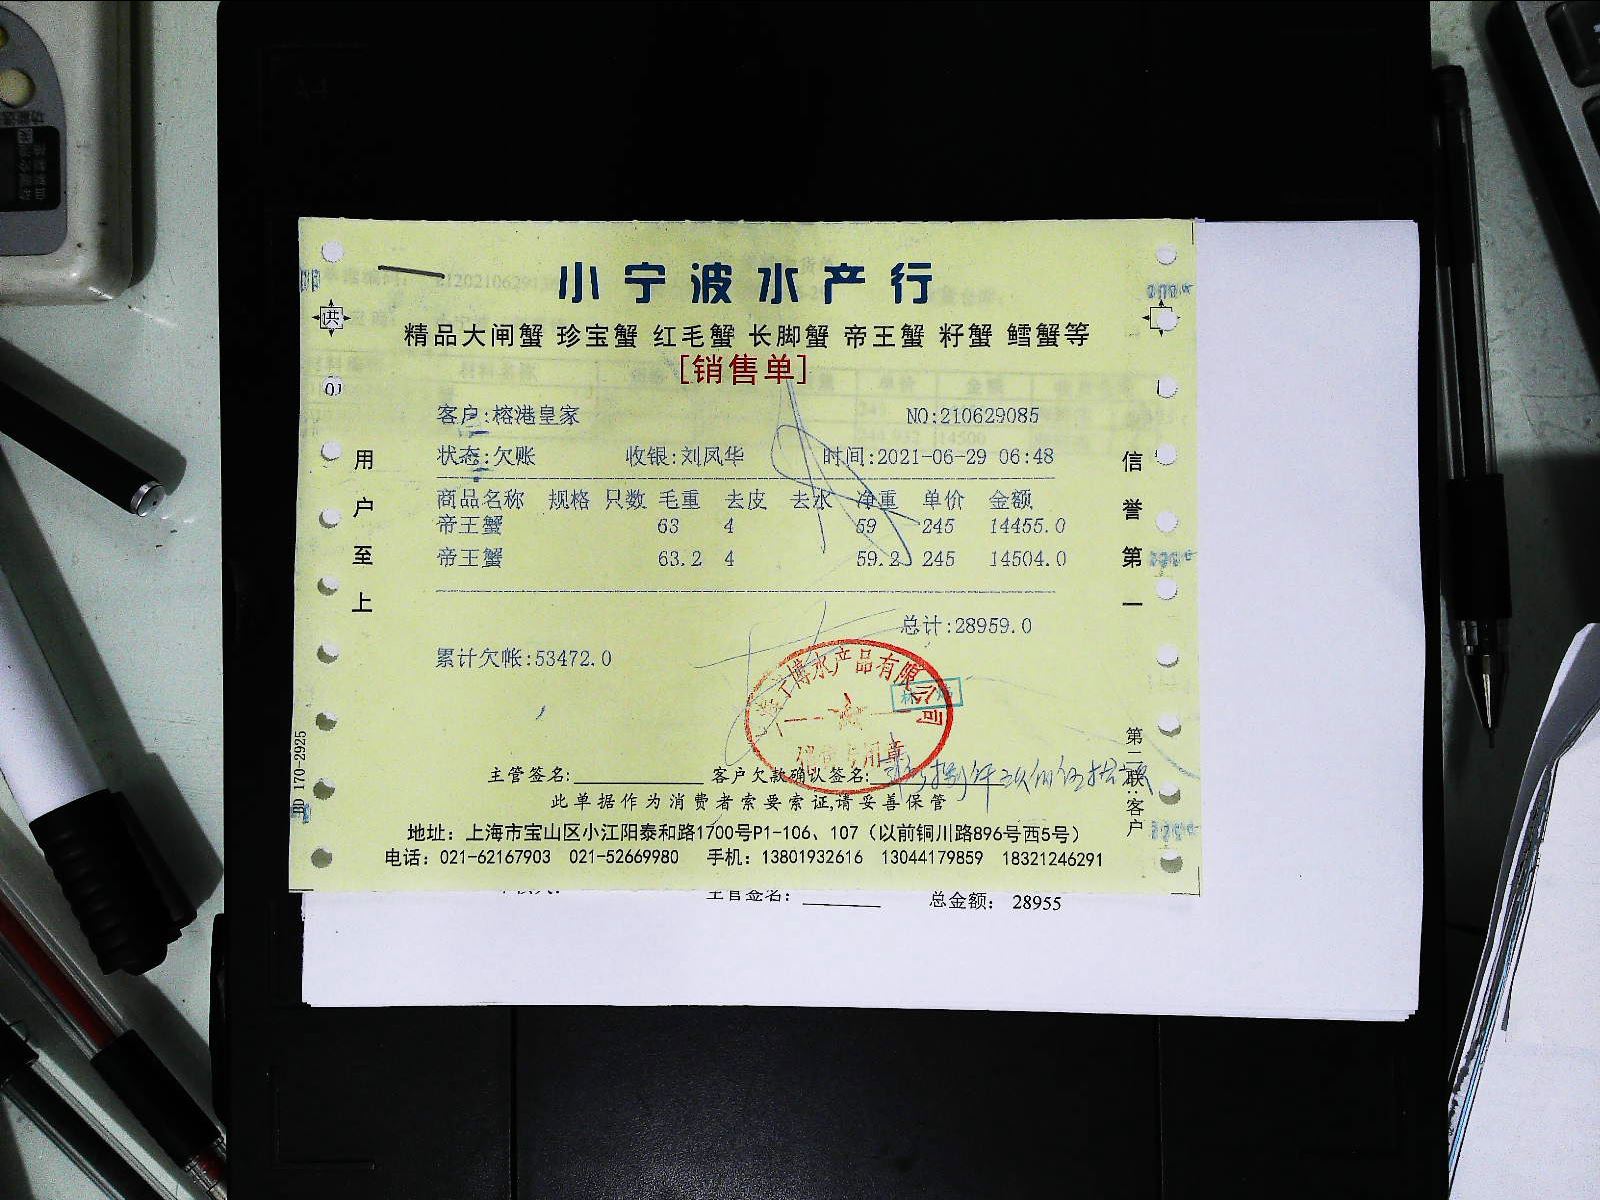 小宁波水产行
精品大闸蟹 珍宝蟹 红毛蟹 长脚蟹 帝王蟹 籽蟹 鳕蟹等
[销售单]
客户:榕港皇家 NO:210629085
状态:欠账 收银:刘凤华 时间:2021-06-29 06:48
商品名称 规格 只数 毛重 去皮 去水 净重 单价 金额
帝王蟹 63 4 59 245 14455.0
帝王蟹 63.2 4 59.2 245 14504.0
总计:28959.0
累计欠帐:53472.0
博水产品有限公司
专用章
主管签名: 客户欠款确认签名:
此单据作为消费者索要索证,请妥善保管
地址：上海市宝山区小江阳泰和路1700号P1-106、107（以前铜川路896号西5号）
电话：021-62167903 021-52669980 手机：13801932616 13044179859 18321246291
用户至上
信誉第一
第二联:客户
BD 170-2925
供
01
主管签名：
总金额： 28955